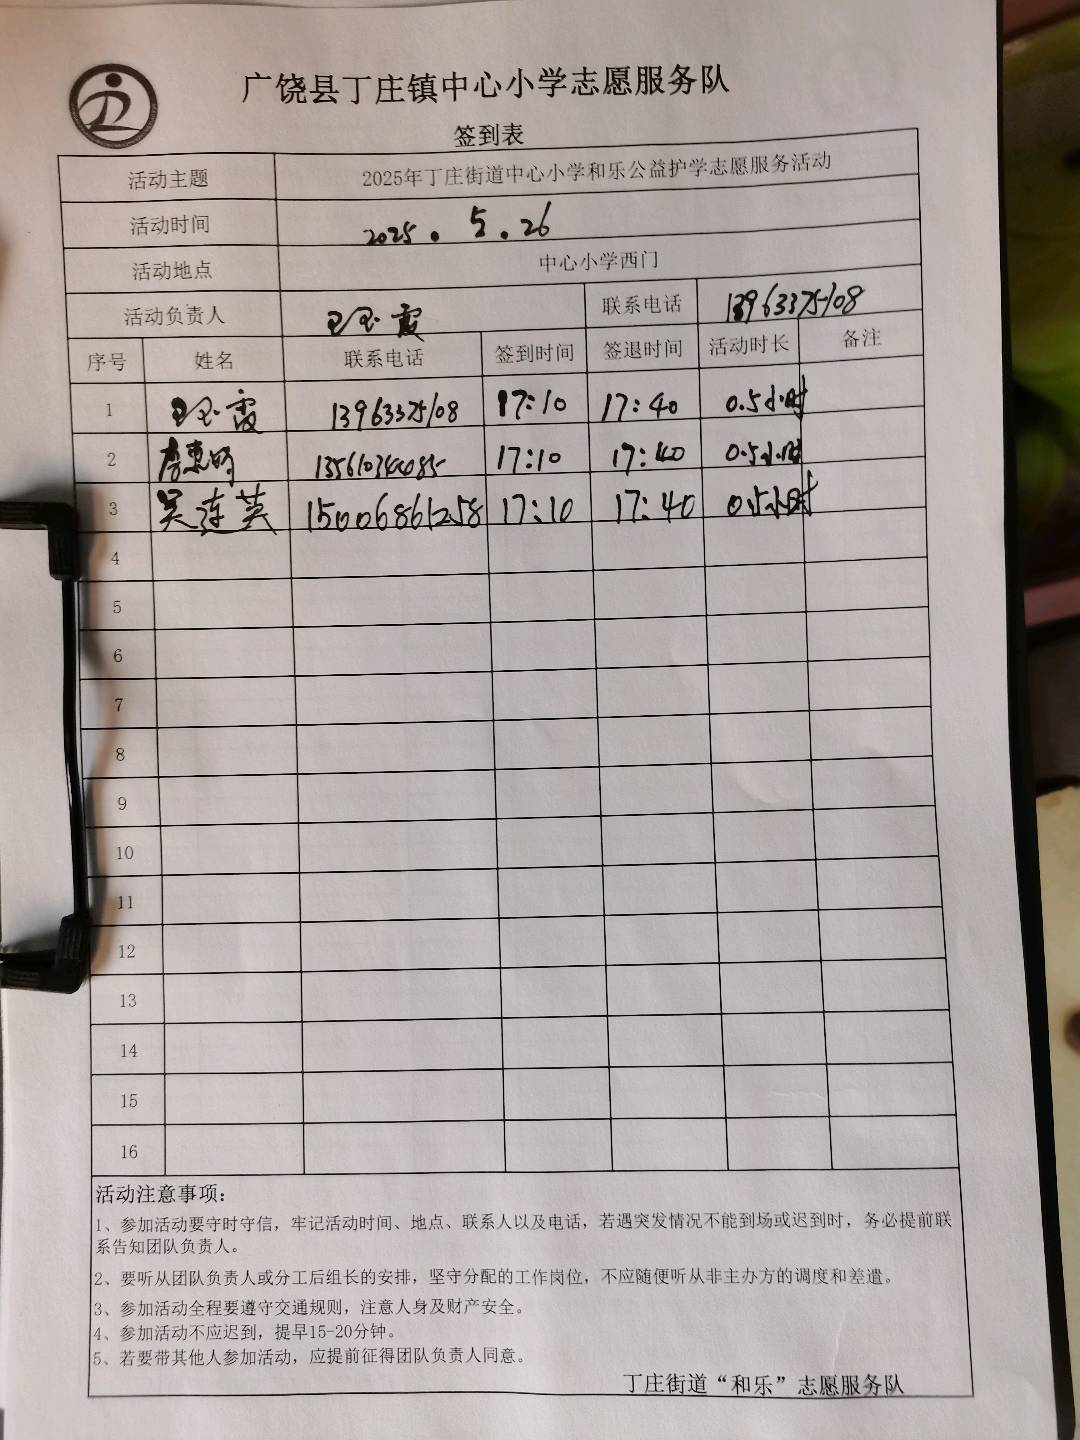 广饶县丁庄镇中心小学志愿服务队
签到表
活动主题 2025年丁庄街道中心小学和乐公益护学志愿服务活动
活动时间 2025.5.26
活动地点 中心小学西门
活动负责人 王玉霞 联系电话 13963375108
序号 姓名 联系电话 签到时间 签退时间 活动时长 备注
1 王玉霞 13963375108 17:10 17:40 0.5小时
2 17:10 17:40 0.5小时
3 吴连英 15006861258 17:10 17:40 0.5小时
4
5
6
7
8
9
10
11
12
13
14
15
16
活动注意事项：
1、参加活动要守时守信，牢记活动时间、地点、联系人以及电话，若遇突发情况不能到场或迟到时，务必提前联
系告知团队负责人。
2、要听从团队负责人或分工后组长的安排，坚守分配的工作岗位，不应随便听从非主办方的调度和差遣。
3、参加活动全程要遵守交通规则，注意人身及财产安全。
4、参加活动不应迟到，提早15-20分钟。
5、若要带其他人参加活动，应提前征得团队负责人同意。
丁庄街道“和乐”志愿服务队